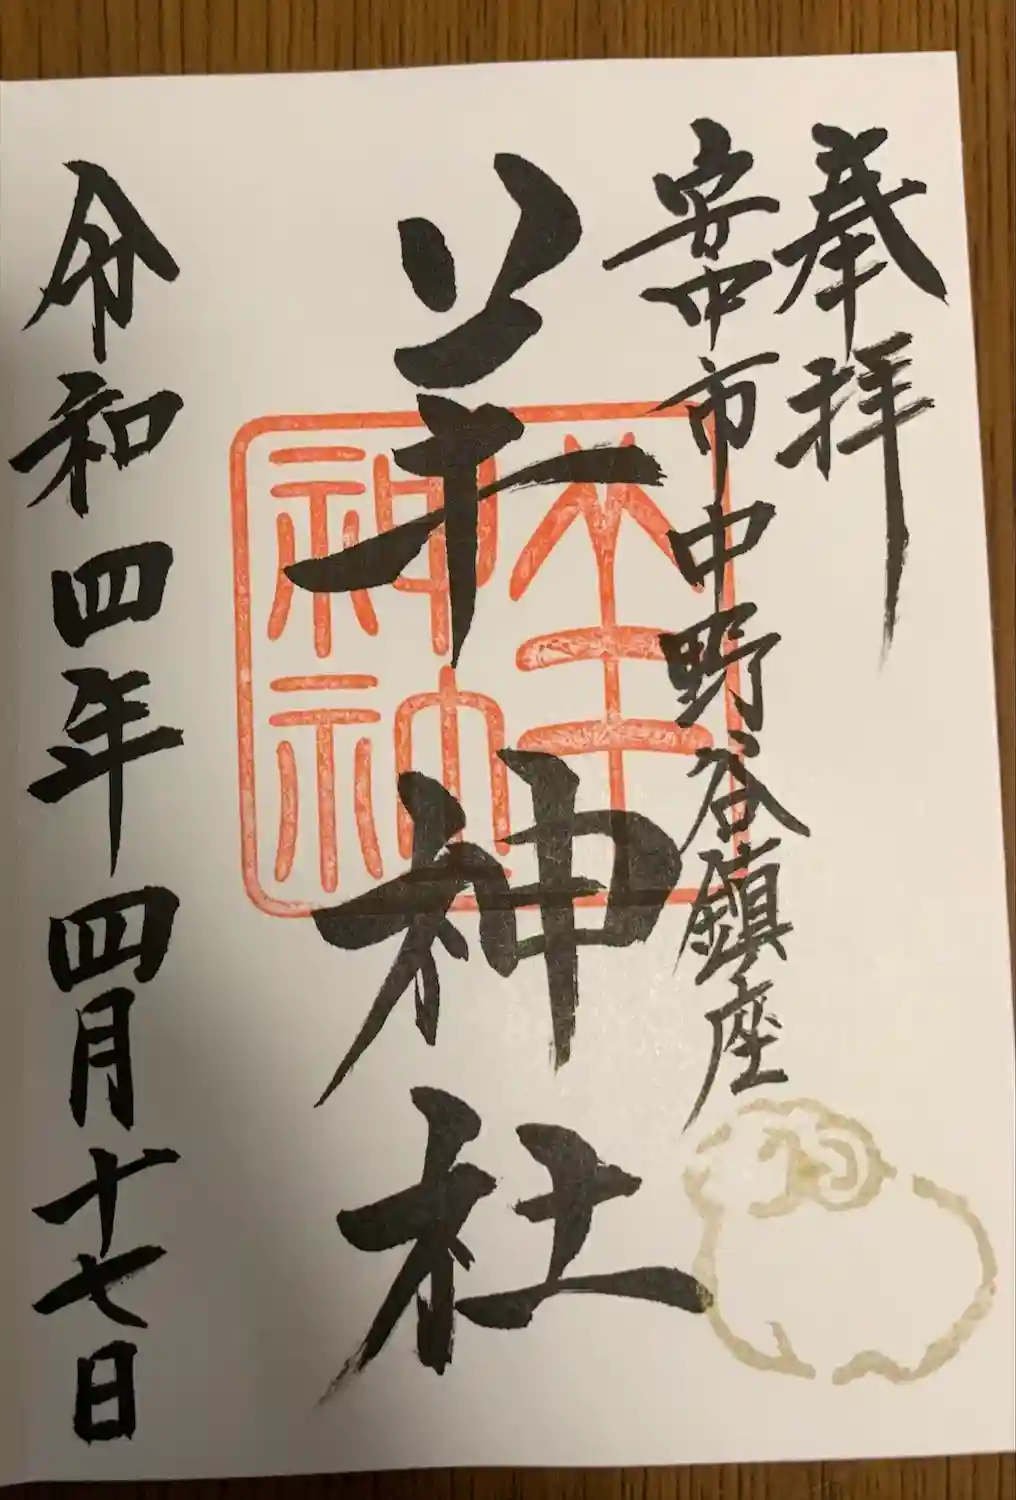 奉拝
安中市中野谷鎮座
羊神社
羊神神社
令和四年四月十七日